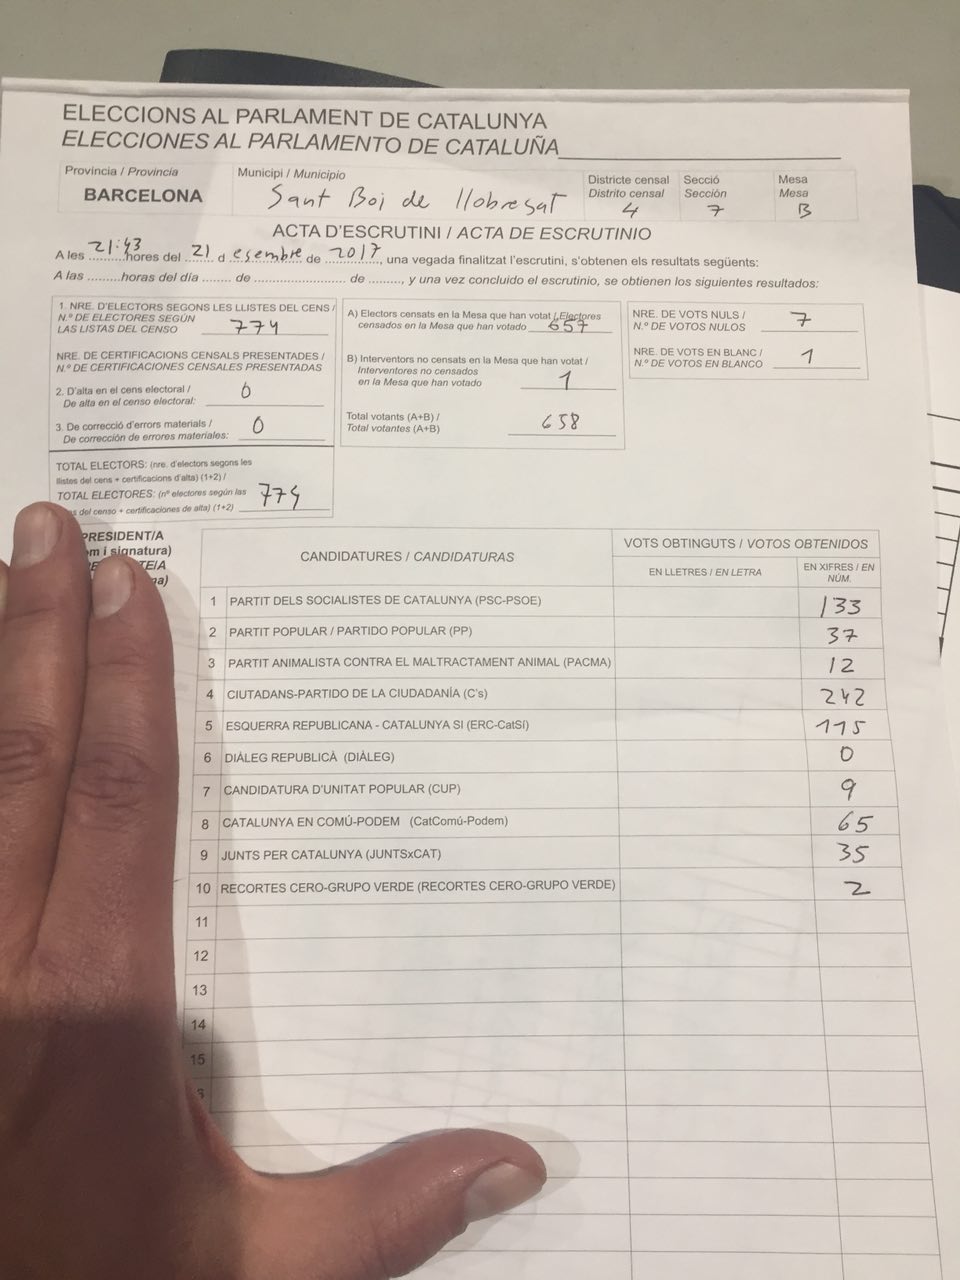 ELECCIONS AL PARLAMENT DE CATALUNYA
ELECCIONES AL PARLAMENTO DE CATALUÑA
Provincia / Provincia
BARCELONA
Municipi / Municipio
Sant Boi de Llobregat
Districte censal
Distrito censal
4
Secció
Sección
7
Mesa
Mesa
B
ACTA D'ESCRUTINI / ACTA DE ESCRUTINIO
A les 21:43 hores del 21 d esembre de 2017, una vegada finalitzat l'escrutini, s'obtenen els resultats següents:
A las .........horas del día ....... de ............................ de ........., y una vez concluido el escrutinio, se obtienen los siguientes resultados:
1. NRE. D'ELECTORS SEGONS LES LLISTES DEL CENS /
N.º DE ELECTORES SEGÚN
LAS LISTAS DEL CENSO 774
NRE. DE CERTIFICACIONS CENSALS PRESENTADES /
N.º DE CERTIFICACIONES CENSALES PRESENTADAS
2. D'alta en el cens electoral /
De alta en el censo electoral: 0
3. De correcció d'errors materials /
De corrección de errores materiales: 0
TOTAL ELECTORS: (nre. d'electors segons les
llistes del cens + certificacions d'alta) (1+2) /
TOTAL ELECTORES: (nº electores según las 774
as del censo + certificaciones de alta) (1+2)
A) Electors censats en la Mesa que han votat / Electores
censados en la Mesa que han votado 657
B) Interventors no censats en la Mesa que han votat /
Interventores no censados
en la Mesa que han votado 1
Total votants (A+B) /
Total votantes (A+B) 658
NRE. DE VOTS NULS /
N.º DE VOTOS NULOS 7
NRE. DE VOTS EN BLANC /
N.º DE VOTOS EN BLANCO 1
PRESIDENT/A
om i signatura)
TE/A
na)
CANDIDATURES / CANDIDATURAS
VOTS OBTINGUTS / VOTOS OBTENIDOS
EN LLETRES / EN LETRA
EN XIFRES / EN
NÚM.
1 PARTIT DELS SOCIALISTES DE CATALUNYA (PSC-PSOE) 133
2 PARTIT POPULAR / PARTIDO POPULAR (PP) 37
3 PARTIT ANIMALISTA CONTRA EL MALTRACTAMENT ANIMAL (PACMA) 12
4 CIUTADANS-PARTIDO DE LA CIUDADANÍA (C's) 242
5 ESQUERRA REPUBLICANA - CATALUNYA SI (ERC-CatSí) 115
6 DIÀLEG REPUBLICÀ (DIÀLEG) 0
7 CANDIDATURA D'UNITAT POPULAR (CUP) 9
8 CATALUNYA EN COMÚ-PODEM (CatComú-Podem) 65
9 JUNTS PER CATALUNYA (JUNTSxCAT) 35
10 RECORTES CERO-GRUPO VERDE (RECORTES CERO-GRUPO VERDE) 2
11
12
13
14
15